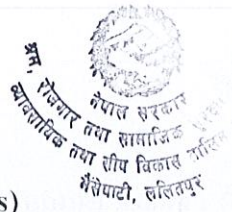 नेपाल सरकार
श्रम, रोजगार तथा सामाजिक सुरक्षा
व्यावसायिक तथा सीप विकास तालिम
भैसेपाटी, ललितपुर
s)